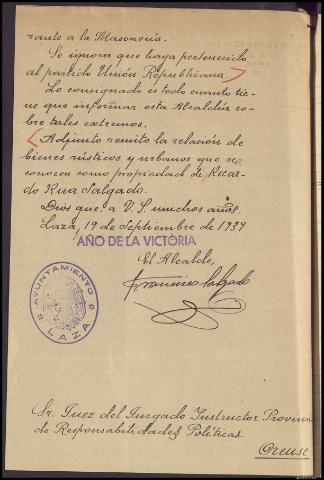 rante a la Masonería.
Se ignora que haya pertenecido
al partido Unión Republicana
Lo consignado es todo cuanto tie-
ne que informar esta Alcaldía so-
bre tales extremos.
Adjunto remito la relación de
bienes rústicos y urbanos que se
conocen como propiedad de Ricar-
do Rua Salgado.
Dios gue. a V. S. muchos años.
Laza, 19 de Septiembre de 1939
AÑO DE LA VICTORIA
El Alcalde,
Francisco Salgado
AYUNTAMIENTO
LAZA
Sr. Juez del Juzgado Instructor Provin
de Responsabilidades Políticas.
Orense